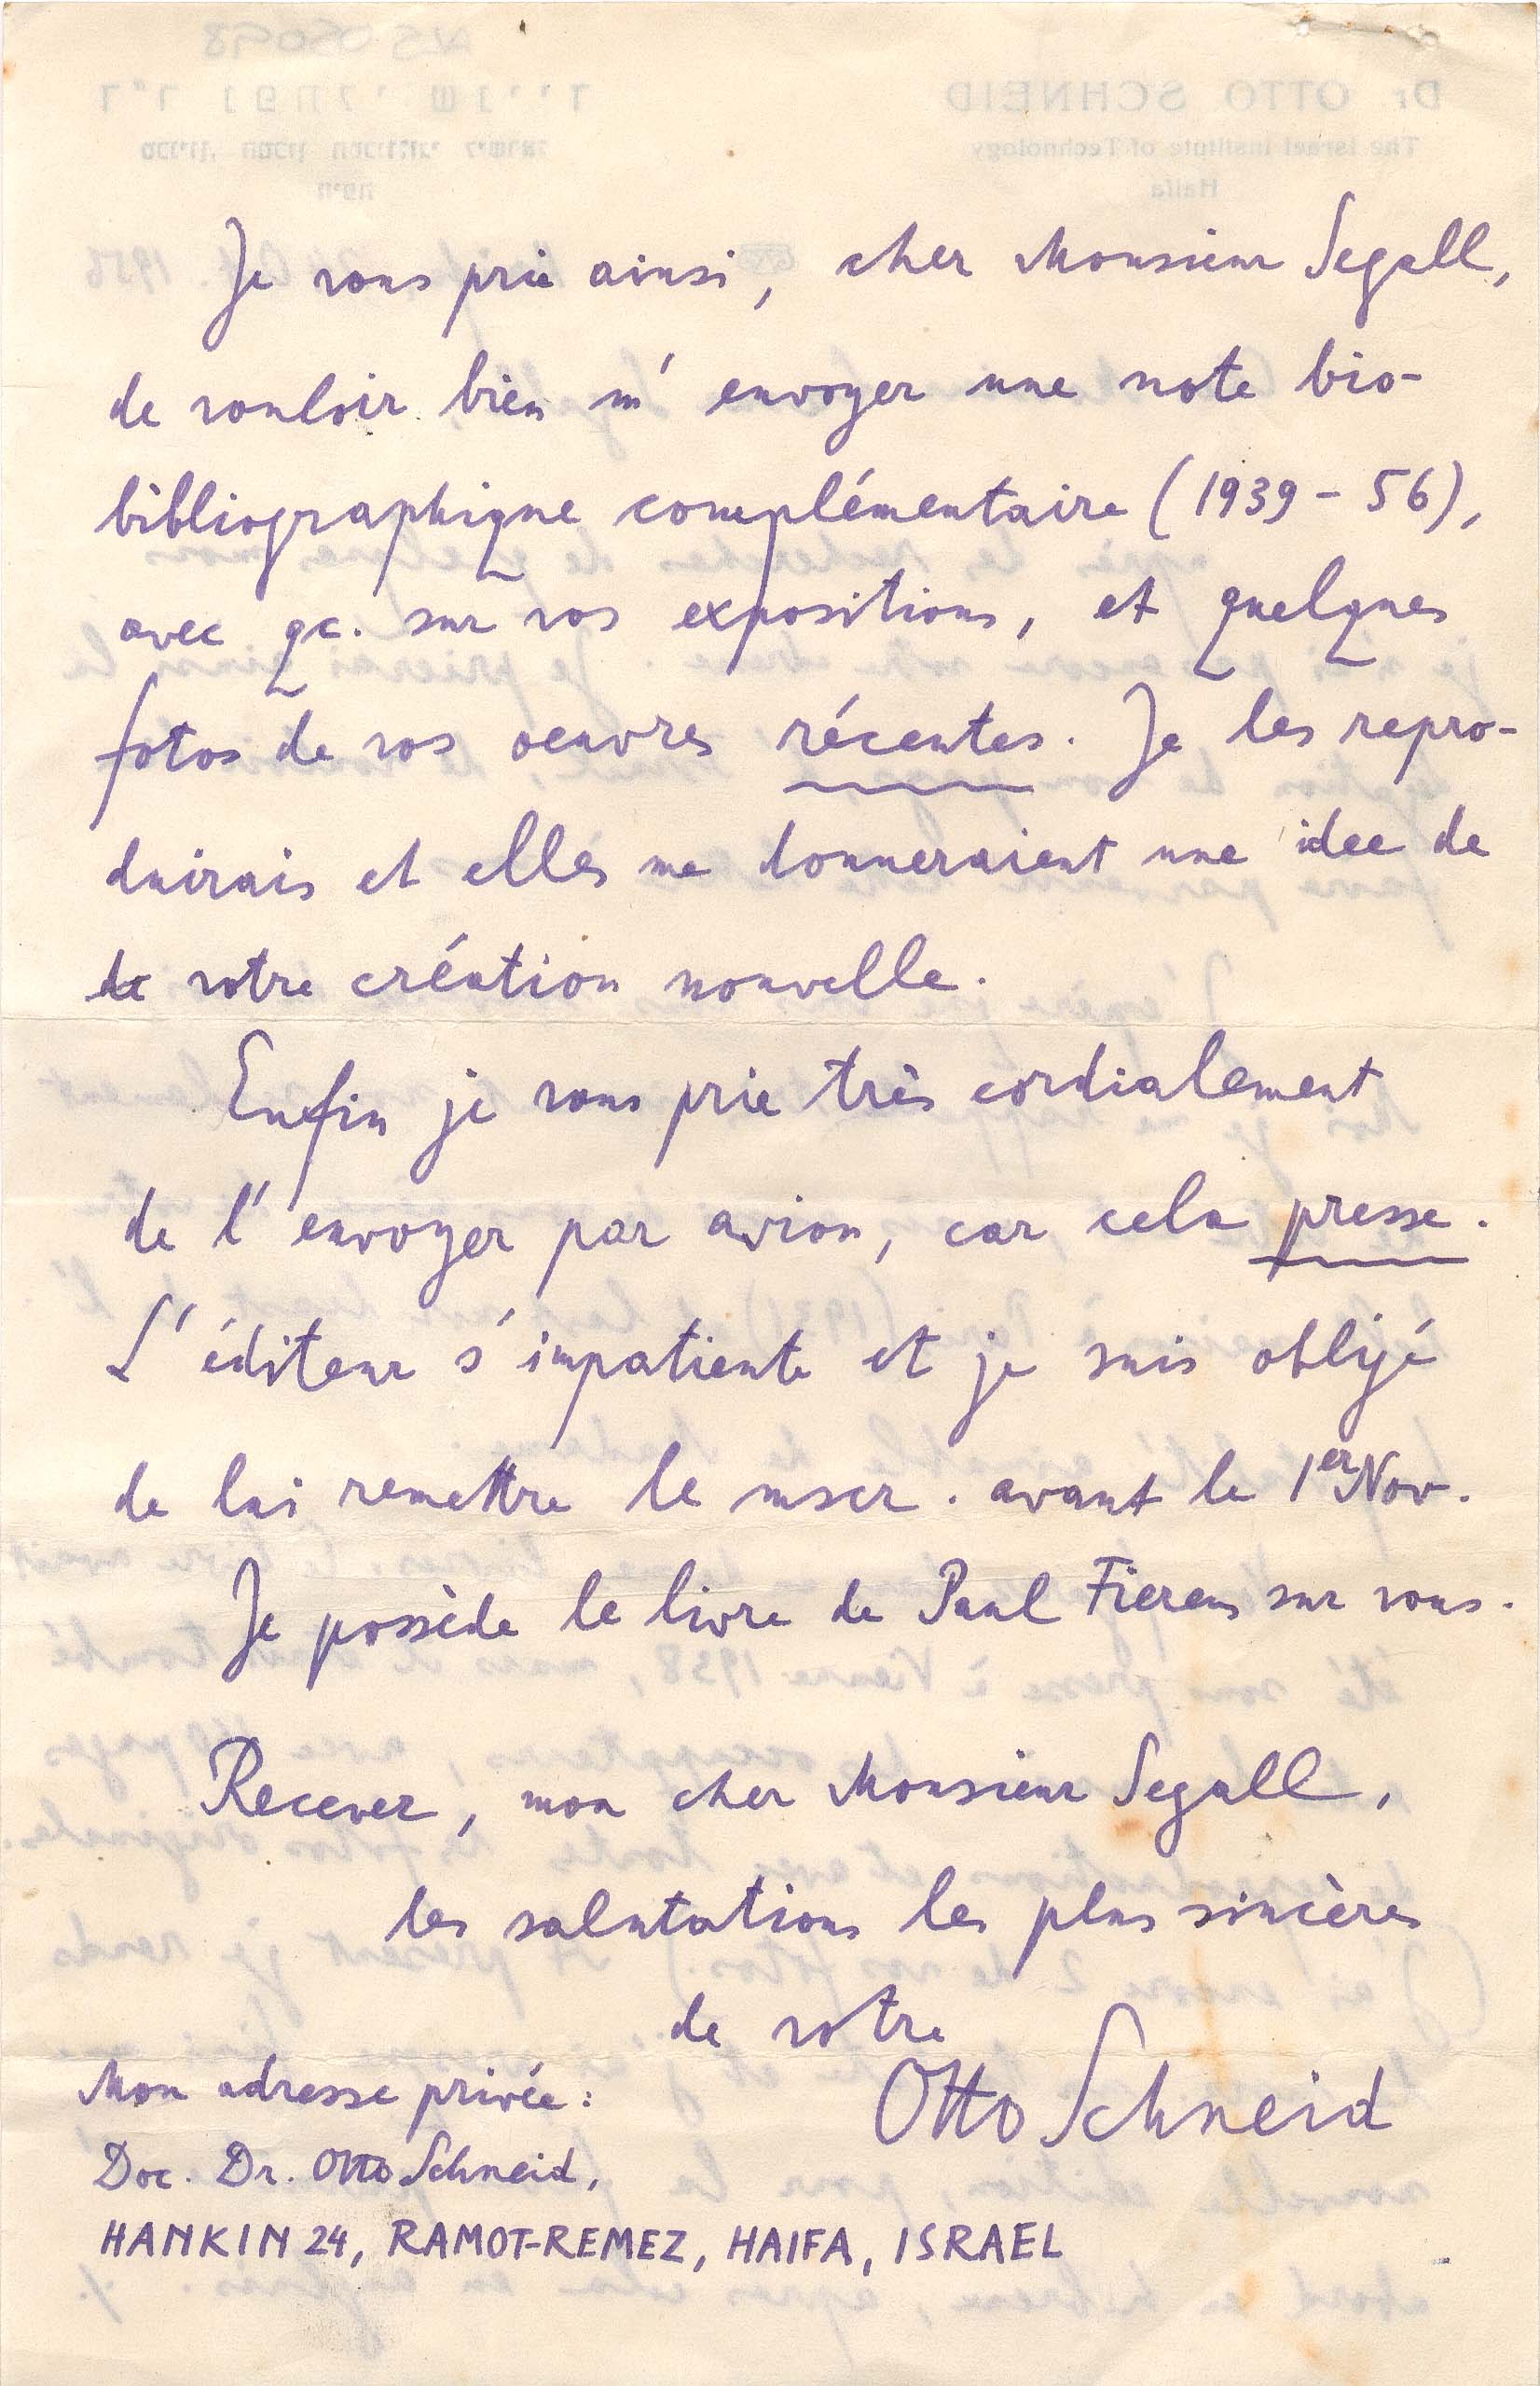 Je vous prie ainsi, cher Monsieur Segall,
de vouloir bien m'envoyer une note bio-
bibliographique complémentaire (1939 - 56),
avec qc. sur vos expositions, et quelques
fotos de vos oeuvres récentes. Je les repro-
duirais et elles me donneraient une idee de
de votre création nouvelle.
Enfin je vous prie très cordialement
de l'envoyer par avion, car cela presse.
L'éditeur s'impatiente et je suis obligé
de lui remettre le mscr. avant le 1er Nov.
Je possède le livre de Paul Fierens sur vous.
Recever, mon cher Monsieur Segall,
les salutations les plus sincères
de votre
Otto Schneid
Mon adresse privée:
Doc. Dr. Otto Schneid,
HANKIN 24, RAMOT-REMEZ, HAIFA, ISRAEL